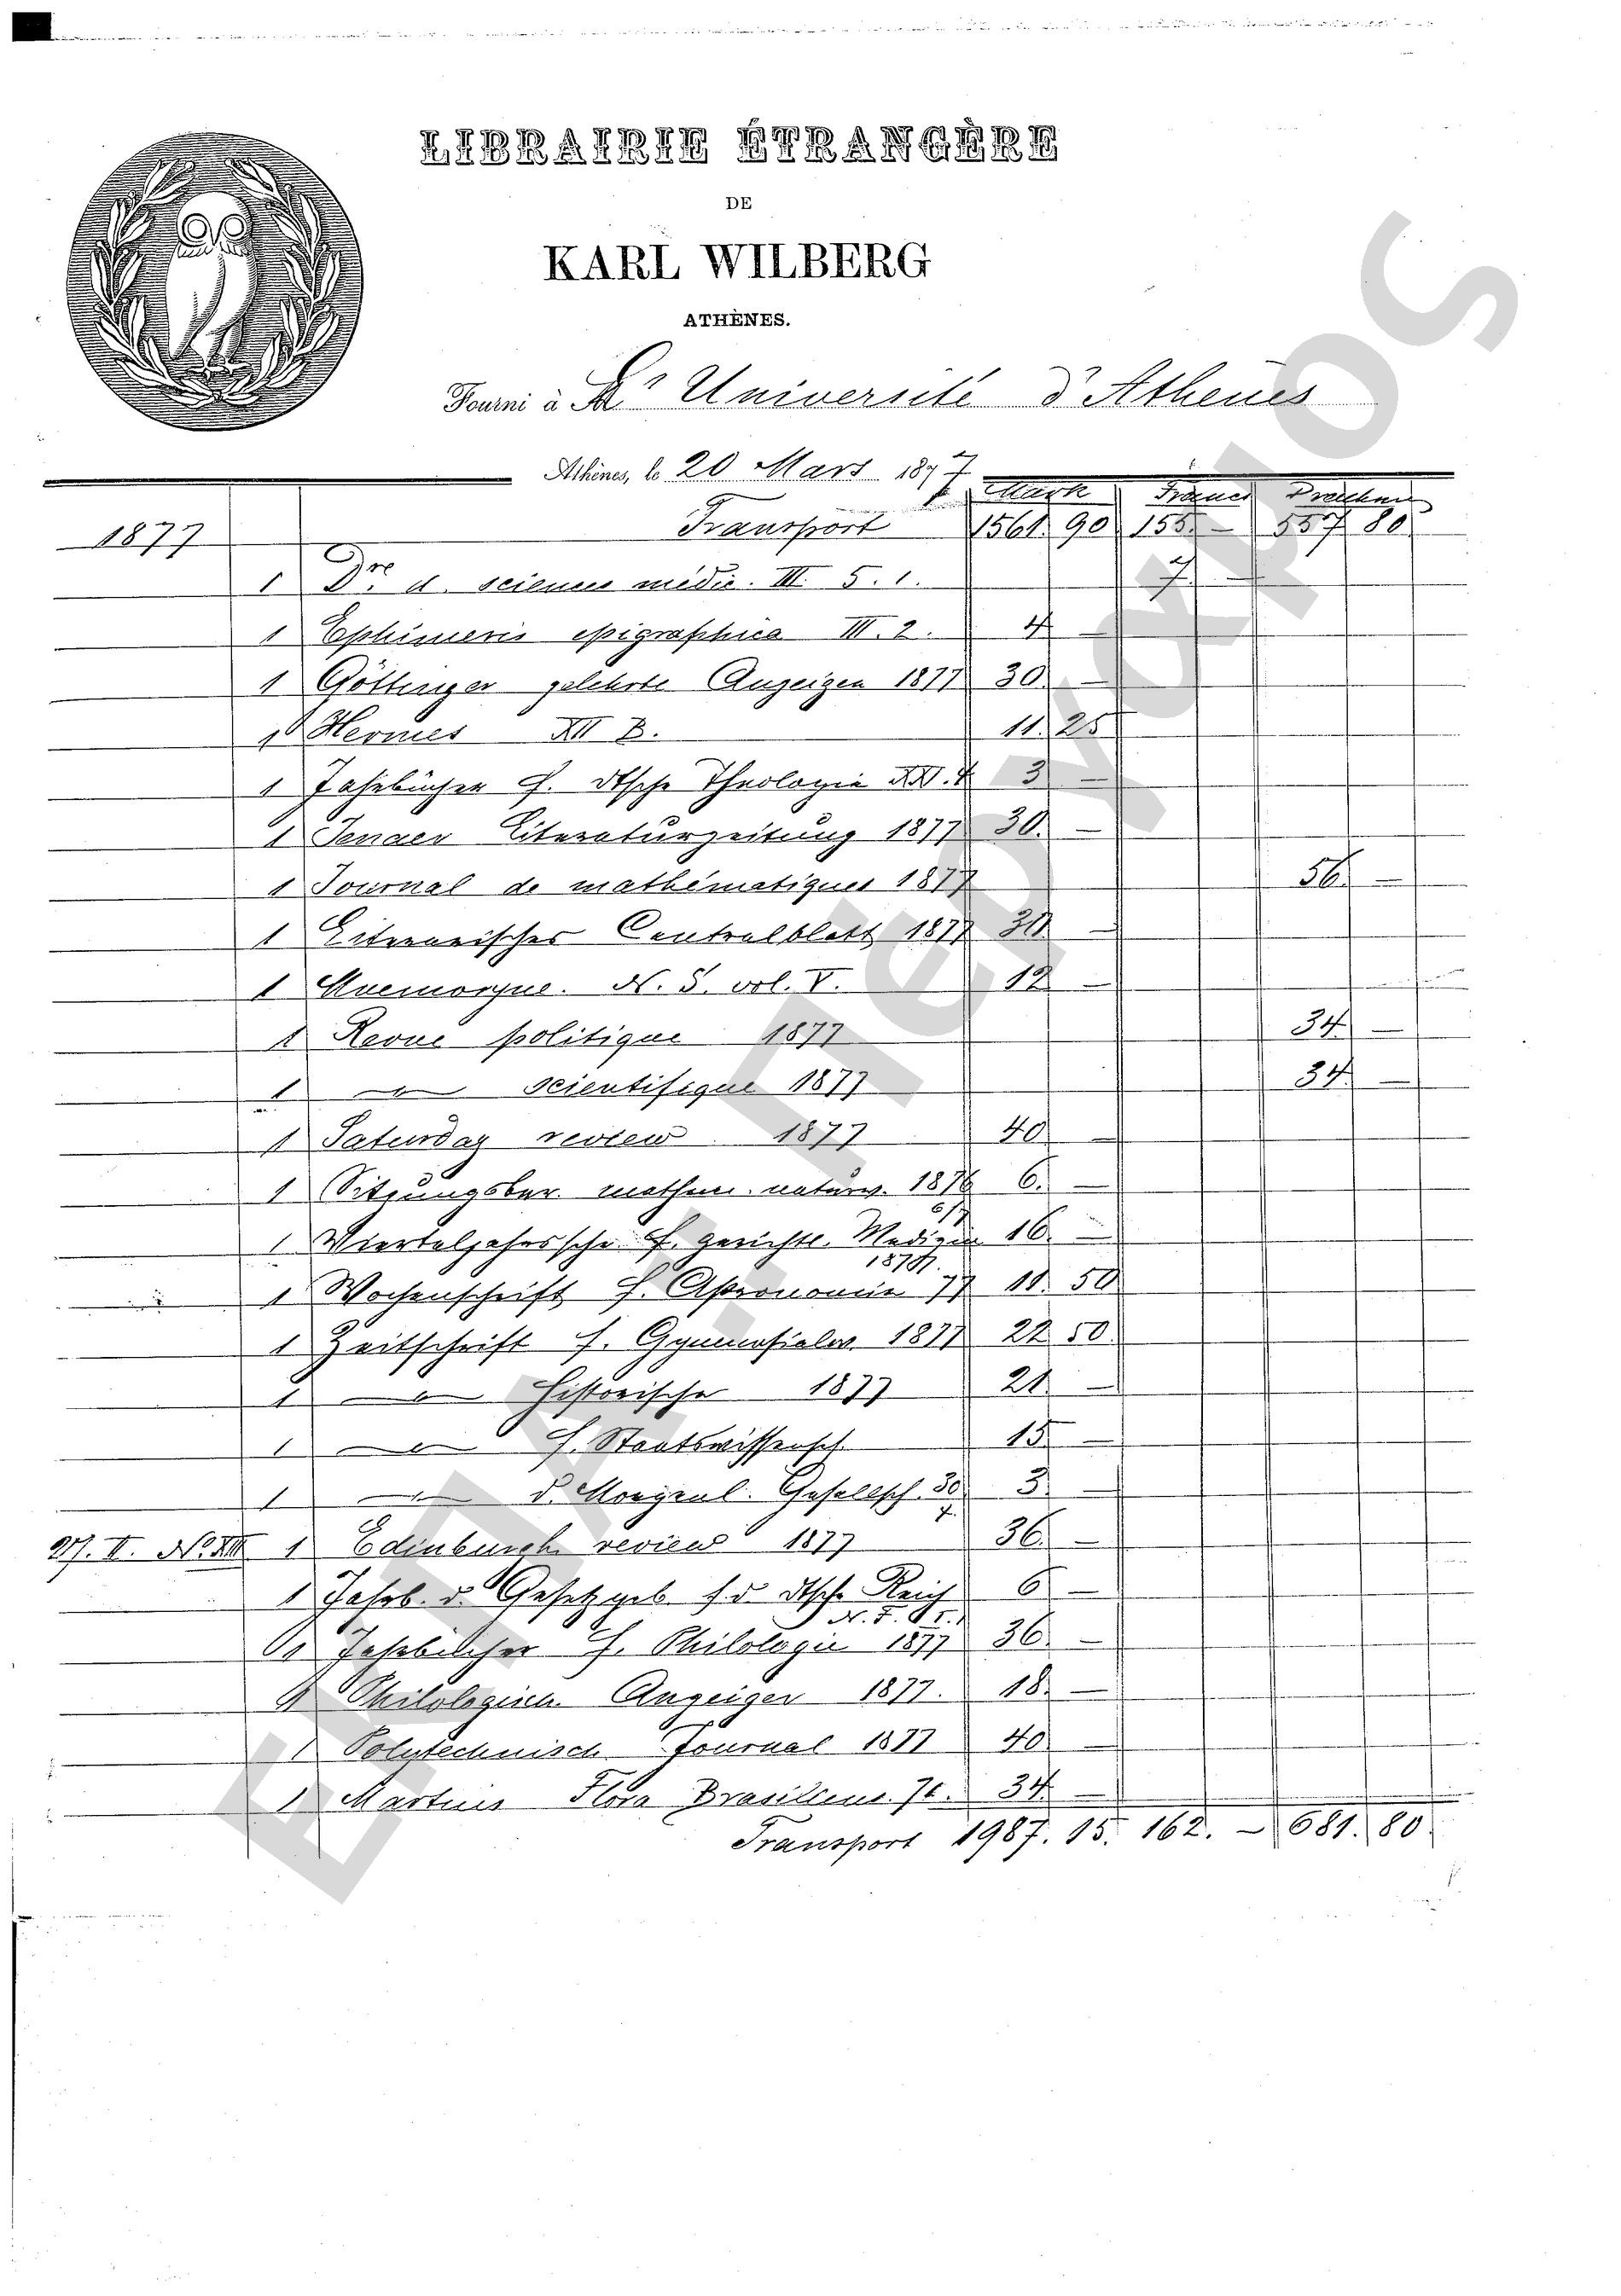 LIBRAIRIE ÉTRANGÈRE
DE
KARL WILBERG
ATHÈNES.
Fourni à L' Université d'Athènes
Athènes, le 20 Mars 1877
Mark Francs Drachmes
1877 Transport 1561. 90 155. — 557 80
1 Dre d. sciences médic. III. 5. 1. 7. —
1 Ephimeris epigraphica III. 2. 4 —
1 Göttinger gelehrte Anzeigen 1877 30. —
1 Hermes XII B. 11. 25
1 Jahrbücher f. dtsche Theologie XXI. 4 3 —
1 Jenaer Literaturzeitung 1877 30. —
1 Journal de mathématiques 1877 56. —
1 Literarisches Centralblatt 1877 30 —
1 Mnemosyne. N. S. vol. V. 12 —
1 Revue politique 1877 34. —
1 — " — scientifique 1877 34. —
1 Saturday review 1877 40 —
1 Sitzungsber. mathem. naturw. 1876 6. —
6/7
1 Vierteljahrsschr. f. gerichtl. Medizin 16. —
1877.
1 Wochenschrift f. Astronomie 77 10. 50
1 Zeitschrift f. Gymnasialw. 1877 22 50
1 — " — historische 1877 21. —
1 — " — f. Staatswissensch. 15 —
1 — " — d. Morgenl. Gesellsch. 30 3. —
4.
27. II. No. XIII 1 Edinburgh review 1877 36. —
1 Jahrb. d. Gesetzgeb. f. d. dtsche Reich 6 —
N. F. I. 1.
1 Jahrbücher f. Philologie 1877 36. —
1 Philologisch. Anzeiger 1877. 18. —
1 Polytechnisch. Journal 1877 40 —
1 Martius Flora Brasiliens. 70. 34. —
Transport 1987. 15. 162. — 681. 80
ΕΚΠΑ - Πέργαμος